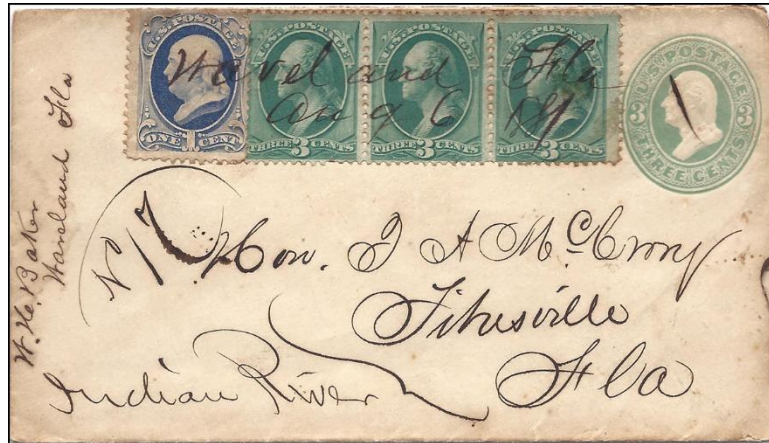 U.S. POSTAGE
ONE 1 CENT
U.S. POSTAGE
THREE 3 CENTS
U.S. POSTAGE
THREE 3 CENTS
U.S. POSTAGE
THREE 3 CENTS
U.S. POSTAGE
3 3
THREE CENTS
Waveland Fla
Aug 6
W. H. Baker
Waveland Fla
N 17
Hon. J A McCrory
Titusville
Fla
Indian River